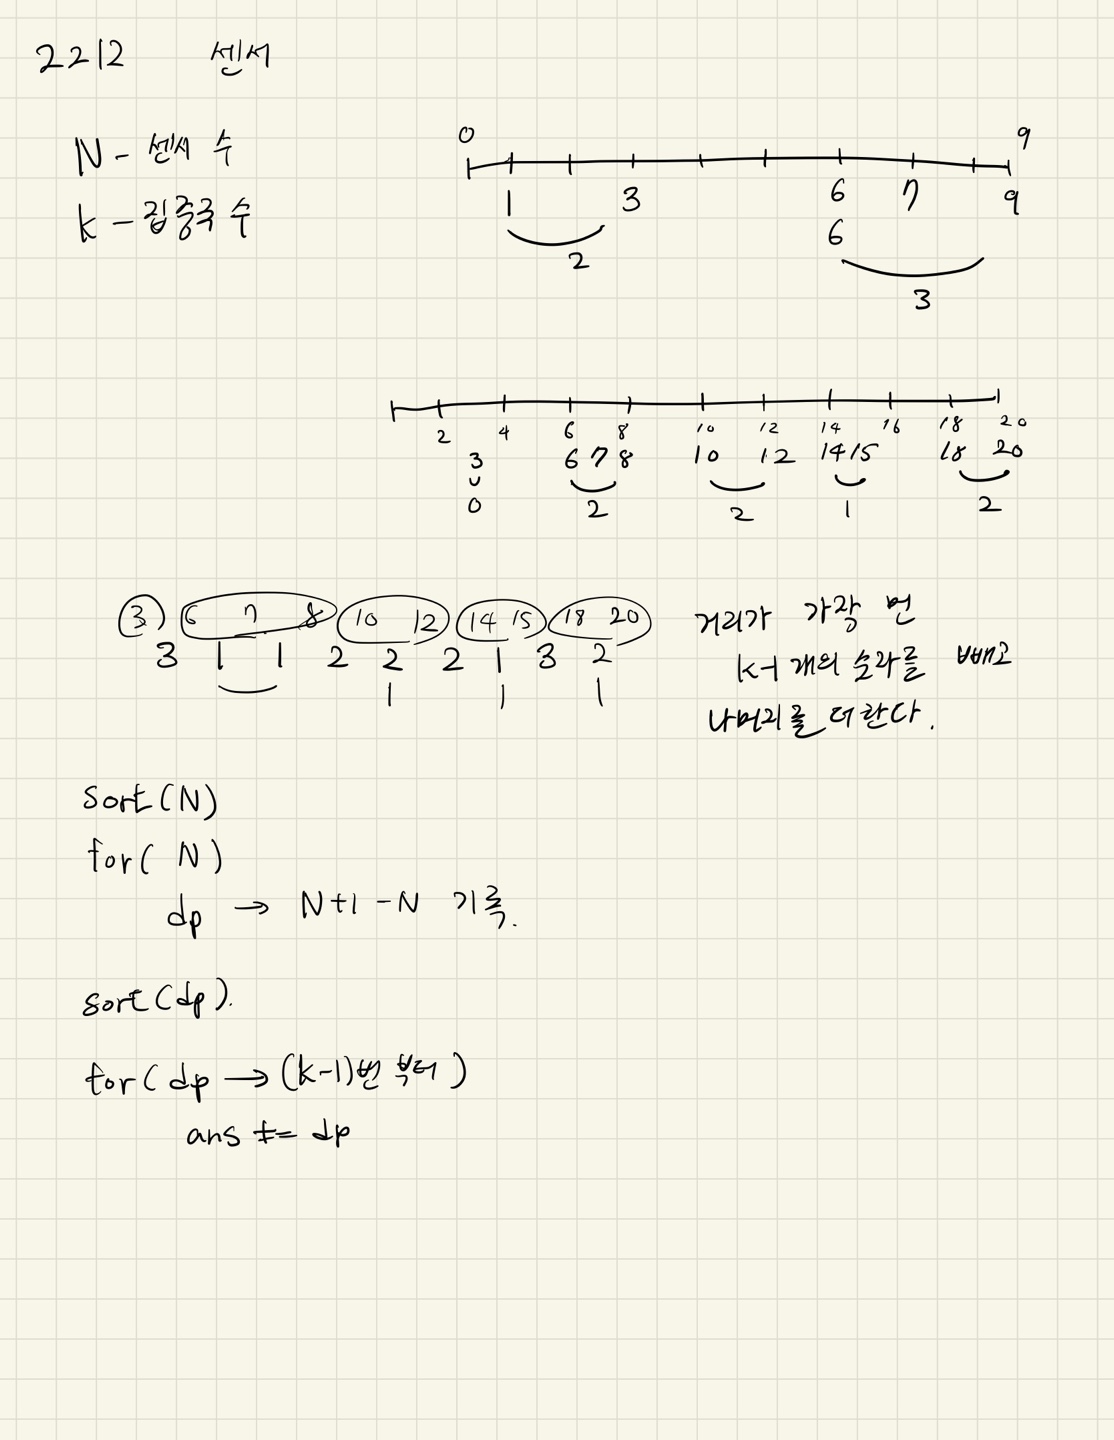 2212 센서
N - 센서 수
k - 집중국 수
0 9
1 3 6 7 9
6
2
3
2 4 6 8 10 12 14 16 18 20
3 6 7 8 10 12 14 15 18 20
0 2 2 1 2
3 6 7 8 10 12 14 15 18 20
3 1 1 2 2 2 1 3 2
1 1 1
거리가 가장 먼
k-1 개의 순라를 빼고
나머지를 더한다.
sort(N)
for( N)
dp → N+1 -N 기록.
sort(dp).
for( dp → (k-1)번 부터 )
ans += dp